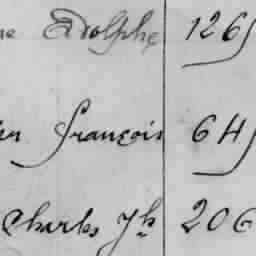 Adolphe 126
françois 64
Charles Jh 206